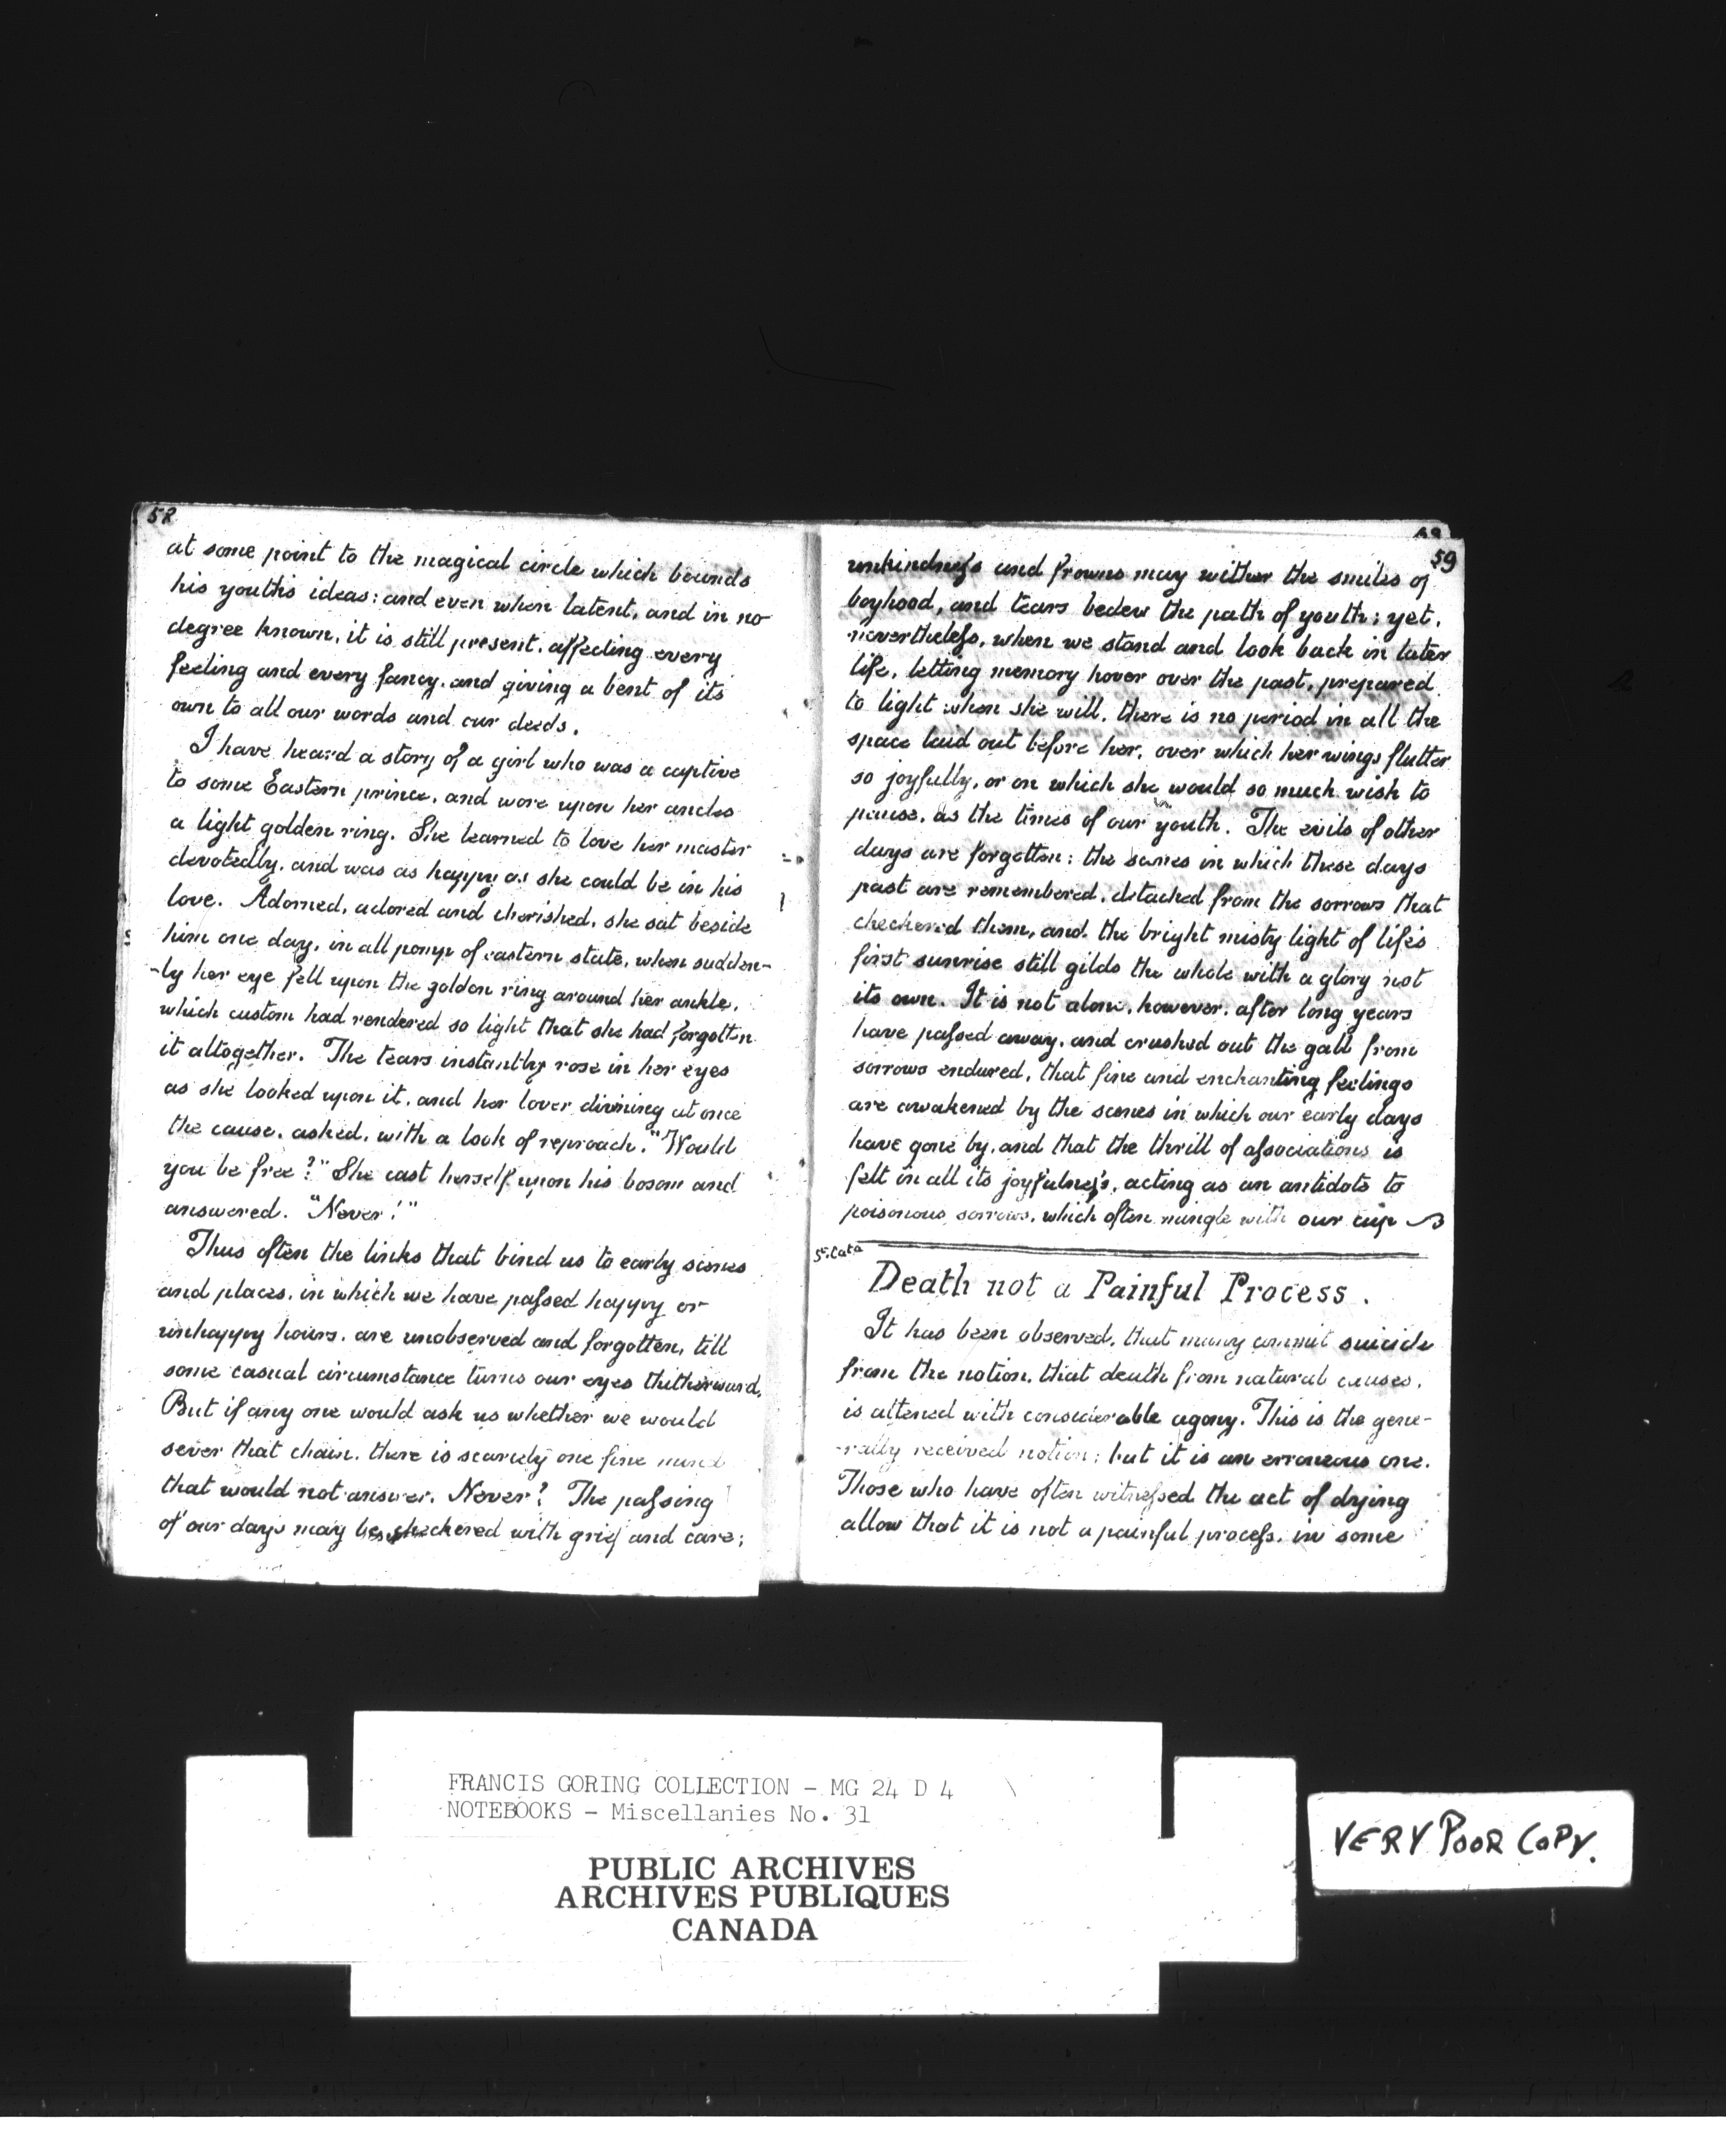 58
at some point to the magical circle which bounds
his youth's ideas: and even when latent, and in no
degree known, it is still present, affecting every
feeling and every fancy, and giving a bent of its
own to all our words and our deeds.
I have heard a story of a girl who was a captive
to some Eastern prince, and wore upon her ancles
a light golden ring. She learned to love her master
devotedly, and was as happy as she could be in his
love. Adorned, adored and cherished, she sat beside
him one day, in all pomp of eastern state, when sudden-
-ly her eye fell upon the golden ring around her ankle,
which custom had rendered so light that she had forgotten
it altogether. The tears instantly rose in her eyes
as she looked upon it, and her lover divining at once
the cause, asked, with a look of reproach, "Would
you be free?" She cast herself upon his bosom and
answered. "Never!"
Thus often the links that bind us to early scenes
and places, in which we have passed happy or
unhappy hours, are unobserved and forgotten, till
some casual circumstance turns our eyes thitherward.
But if any one would ask us whether we would
sever that chain, there is scarcely one fine mind
that would not answer. Never! The passing
of our days may be checkered with grief and care;
59
unkindness and frowns may wither the smiles of
boyhood, and tears bedew the path of youth; yet,
nevertheless, when we stand and look back in later
life, letting memory hover over the past, prepared
to light when she will, there is no period in all the
space laid out before her, over which her wings flutter
so joyfully, or on which she would so much wish to
pause, as the times of our youth. The evils of other
days are forgotten: the scenes in which these days
past are remembered, detached from the sorrows that
checkered them, and the bright misty light of life's
first sunrise still gilds the whole with a glory not
its own. It is not alone, however, after long years
have passed away, and crushed out the gall from
sorrows endured, that fine and enchanting feelings
are awakened by the scenes in which our early days
have gone by, and that the thrill of associations is
felt in all its joyfulness, acting as an antidote to
poisonous sorrows, which often mingle with our cup
Death not a Painful Process.
It has been observed, that many commit suicide
from the notion, that death from natural causes,
is attened with considerable agony. This is the gene-
-rally received notion: but it is an erroneous one.
Those who have often witnessed the act of dying
allow that it is not a painful process. in some
FRANCIS GORING COLLECTION - MG 24 D 4
NOTEBOOKS - Miscellanies No. 31
PUBLIC ARCHIVES
ARCHIVES PUBLIQUES
CANADA
VERY POOR COPY.